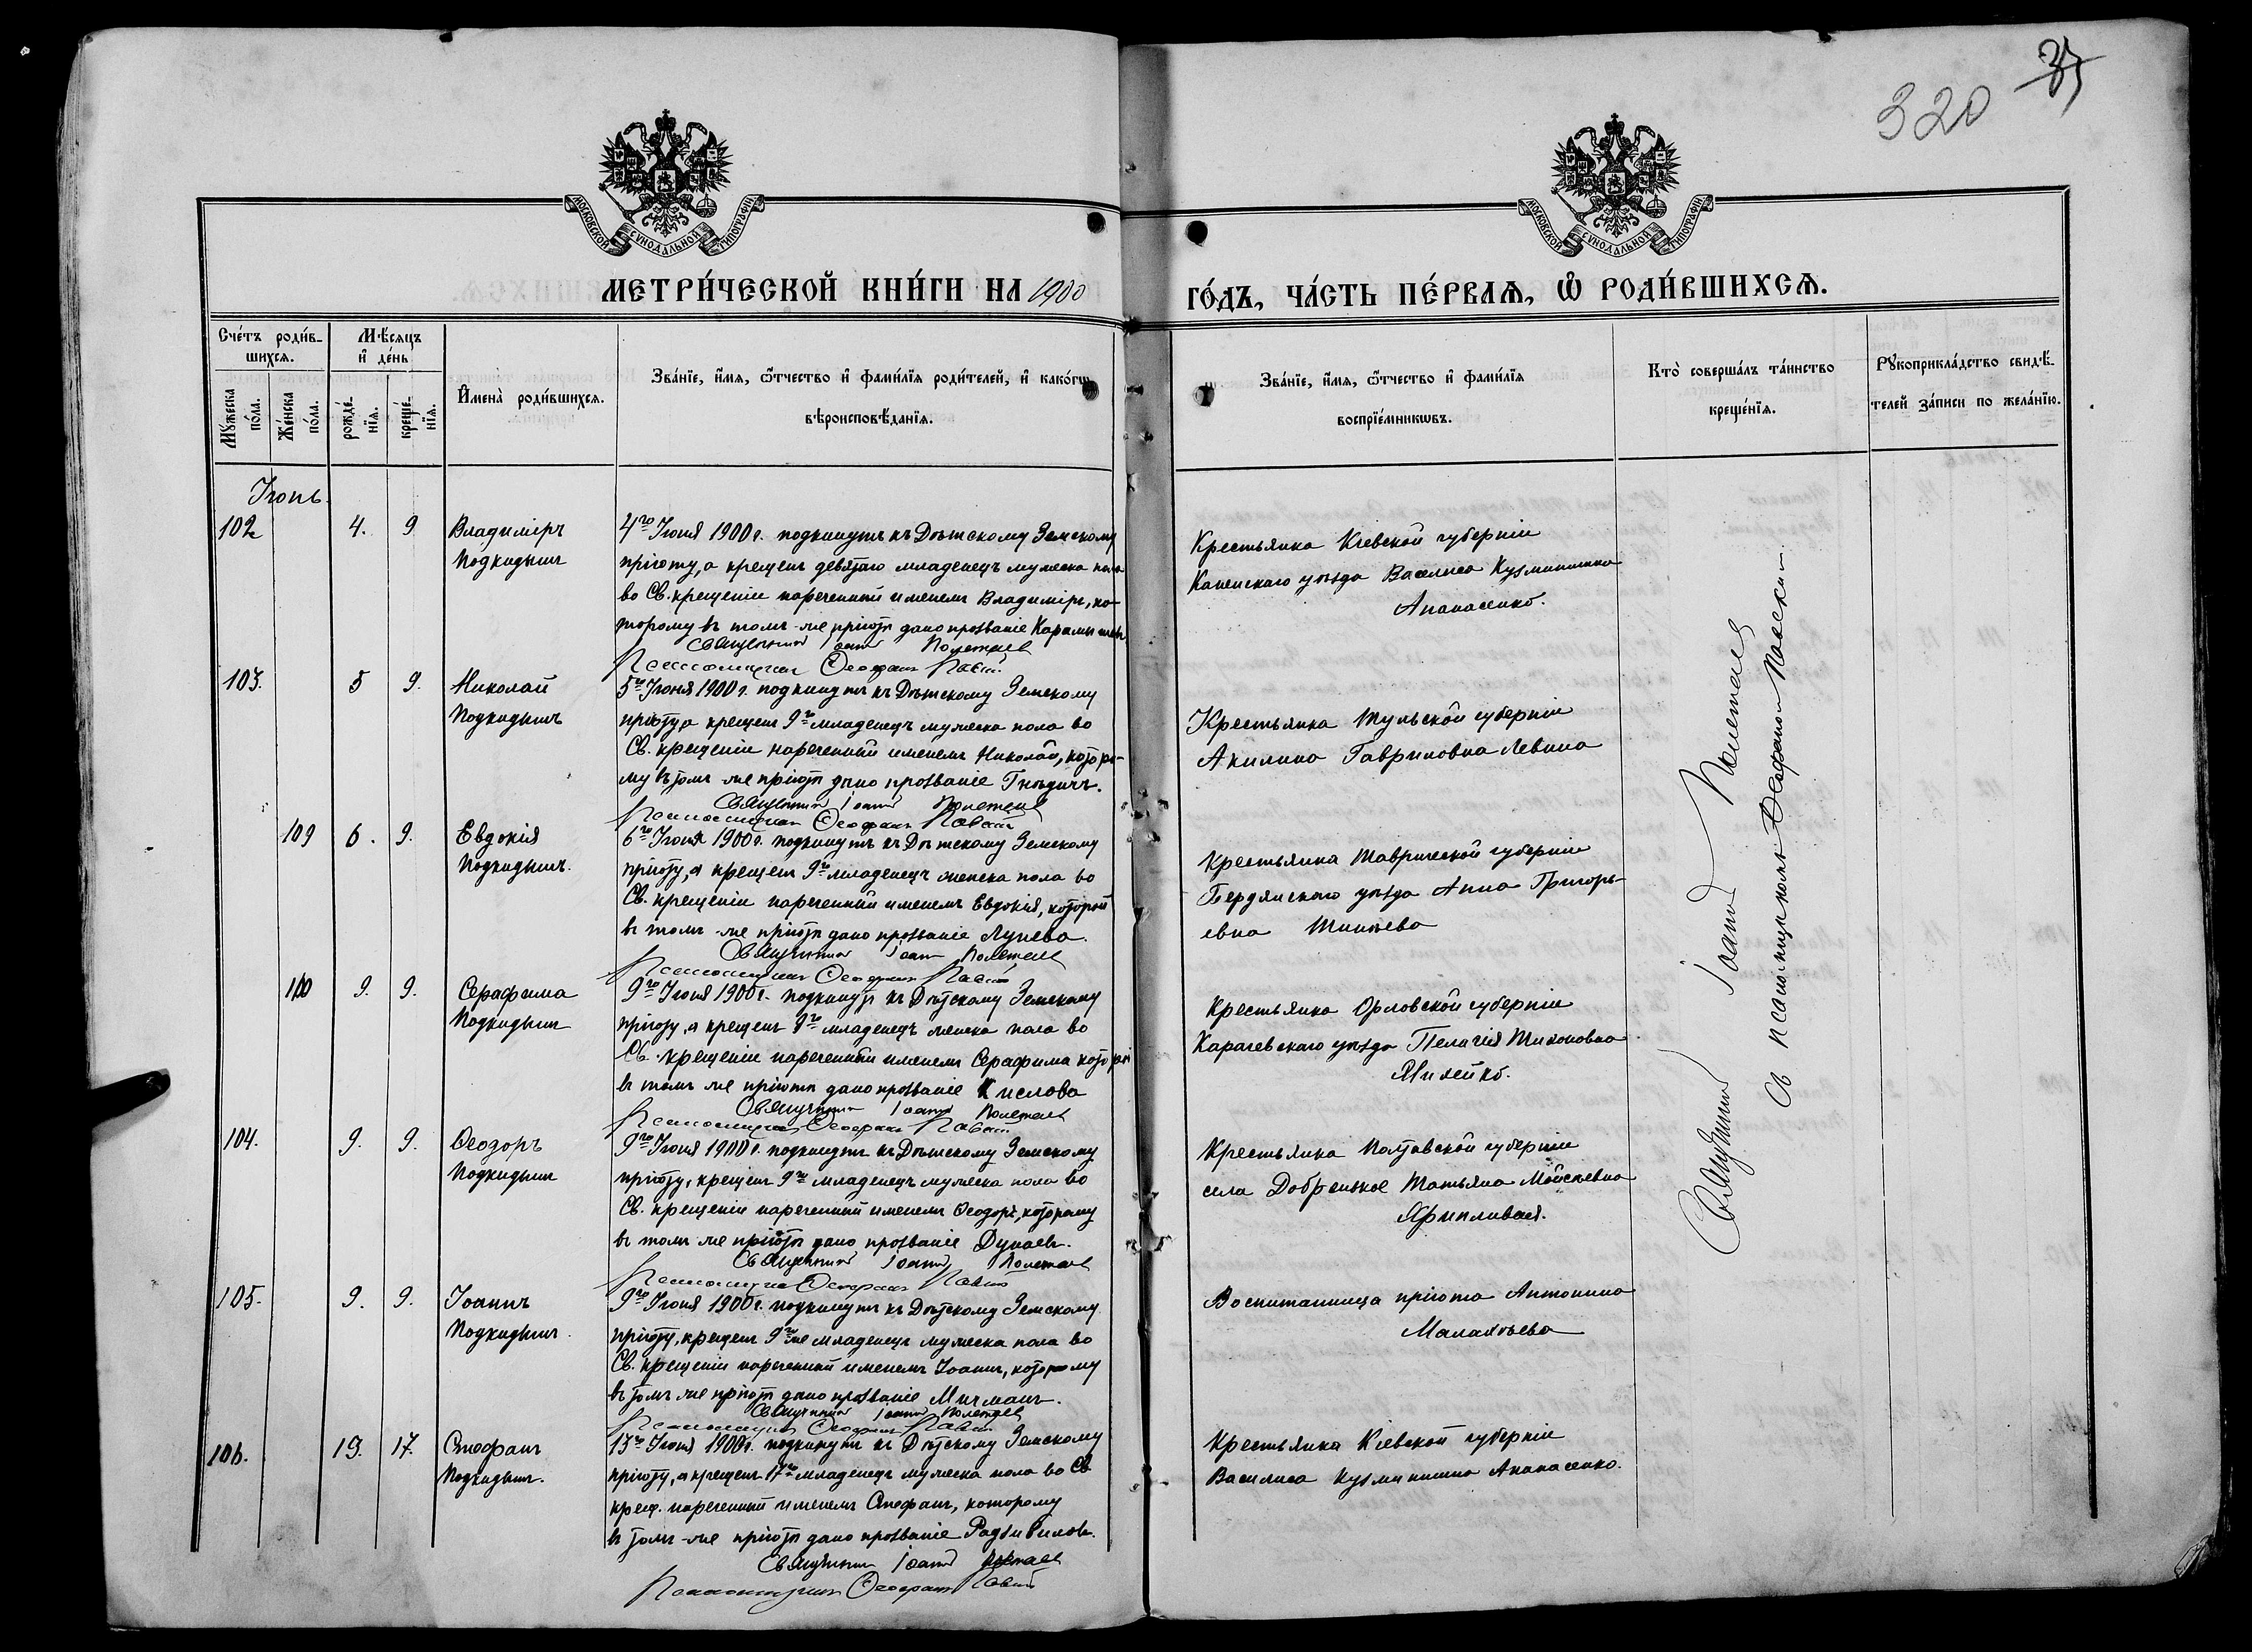 320
37
МОСКОВСКОЙ СѴНОДАЛЬНОЙ ТИПОГРАФІИ
МОСКОВСКОЙ СѴНОДАЛЬНОЙ ТИПОГРАФІИ
МЕТРИ́ЧЕСКОЙ КНИ́ГИ НА 1900
ГО́ДЪ, ЧА́СТЬ ПЕ́РВАѦ, Ѽ РОДИ́ВШИХСѦ.
Сче́тъ роди́в-
шихсѧ.
Мѣ́сѧцъ
и҆ де́нь
Мꙋ́жеска
по́ла.
Же́нска
по́ла.
рожде́-
нїѧ.
креще́-
нїѧ.
И҆мена̀ роди́вшихсѧ.
Зва́нїе, и҆́мѧ, ѻ҆́тчество и҆ фами́лїѧ роди́телей, и҆ како́гѡ
вѣроисповѣ́данїѧ.
Зва́нїе, и҆́мѧ, ѻ҆́тчество и҆ фами́лїѧ
воспрїе́мникѡвъ.
Кто̀ соверша́лъ та́инство
креще́нїѧ.
Рꙋкоприкла́дство свидѣ́-
телей за́писи по жела́нїю.
Іюнь.
102 4. 9 Владиміръ
Подкидышъ
4го Іюня 1900 г. подкинутъ къ Дѣтскому Земскому
пріюту, а крещенъ девятаго младенецъ мужеска пола
во Св. крещеніи нареченный именемъ Владиміръ, ко-
торому въ томъ-же пріютѣ дано прозваніе
Священникъ Іоаннъ Полетаев
Псаломщикъ Ѳеофанъ
Крестьянка Кіевской губерніи
Каневскаго уѣзда Василиса Кузминишна
Апанасенко.
103. 5 9. Николай
Подкидышъ
5го Іюня 1900 г. подкинутъ къ Дѣтскому Земскому
пріюту, а крещенъ 9го младенецъ мужеска пола во
Св. крещеніи нареченный именемъ Николай, которо-
му въ томъ-же пріютѣ дано прозваніе Гнѣдичъ.
Священникъ Іоаннъ Полетаев
Псаломщикъ Ѳеофанъ
Крестьянка Тульской губерніи
Акилина Гавриловна Левина
109 6. 9. Евдокія
Подкидышъ.
6го Іюня 1900 г. подкинутъ къ Дѣтскому Земскому
пріюту, а крещенъ 9го младенецъ женска пола во
Св. крещеніи нареченный именемъ Евдокія, которой
въ томъ-же пріютѣ дано прозваніе Лунева.
Священникъ Іоаннъ Полетаев
Псаломщикъ Ѳеофанъ
Крестьянка Таврической губерніи
Бердянскаго уѣзда Анна Григорь-
евна
110 9. 9. Серафима
Подкидышъ
9го Іюня 1900 г. подкинутъ къ Дѣтскому Земскому
пріюту, а крещенъ 9го младенецъ женска пола во
Св. крещеніи нареченный именемъ Серафима которой
въ томъ же пріютѣ дано прозваніе Кислова
Священникъ Іоаннъ Полетаев
Псаломщикъ Ѳеофанъ
Крестьянка Орловской губерніи
Карачевскаго уѣзда Пелагія Тихоновна
104. 9. 9. Ѳеодоръ
Подкидышъ
9го Іюня 1900 г. подкинутъ къ Дѣтскому Земскому
пріюту, крещенъ 9го младенецъ мужеска пола во
Св. крещеніи нареченный именемъ Ѳеодоръ, которому
въ томъ же пріютѣ дано прозваніе Дунаевъ.
Священникъ Іоаннъ Полетаев
Псаломщикъ Ѳеофанъ
Крестьянка Полтавской губерніи
села Добренькое Татьяна Мойсеевна
105. 9. 9. Іоаннъ
Подкидышъ.
9го Іюня 1900 г. подкинутъ къ Дѣтскому Земскому
пріюту, крещенъ 9го же младенецъ мужеска пола во
Св. крещеніи нареченный именемъ Іоаннъ, которому
въ томъ же пріютѣ дано прозваніе Мичманъ.
Священникъ Іоаннъ Полетаев
Псаломщикъ Ѳеофанъ
Воспитанница пріюта Антонина
Малахьева
106. 13. 17. Стефанъ
Подкидышъ.
13го Іюня 1900 г. подкинутъ къ Дѣтскому Земскому
пріюту, а крещенъ 17го младенецъ мужеска пола во Св
крещ. нареченный именемъ Стефанъ, которому
въ томъ-же пріютѣ дано прозваніе Радзивиловъ.
Священникъ Іоаннъ Полетаев
Псаломщикъ Ѳеофанъ
Крестьянка Кіевской губерніи
Василиса Кузминишна Апанасенко.
Священникъ Іоаннъ Полетаев
Съ псаломщикомъ Ѳеофаномъ